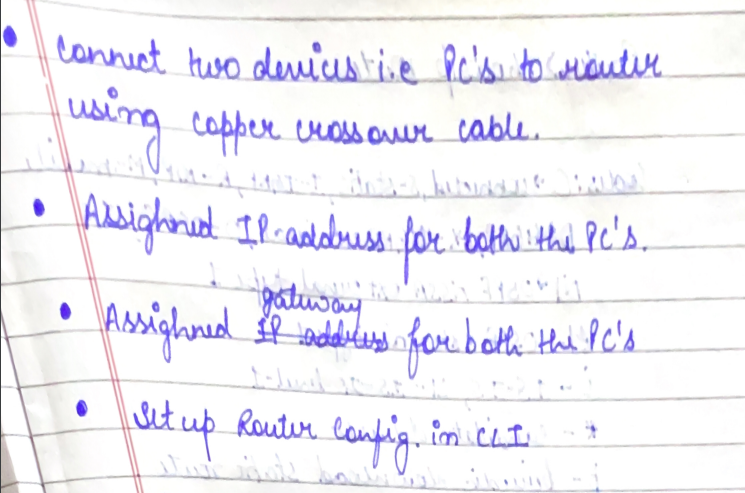 • Connect two devices i.e PC's to router
using copper crossover cable.
• Assighned IP address for both the PC's.
gateway
• Assighned IP address for both the PC's
• Set up Router Config. in CLI